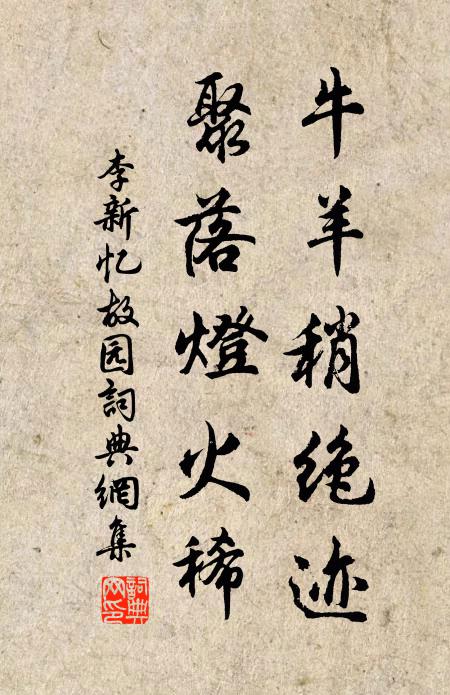 牛羊稍绝迹
聚落燈火稀
李新忆故园詞典網集
詞典網印